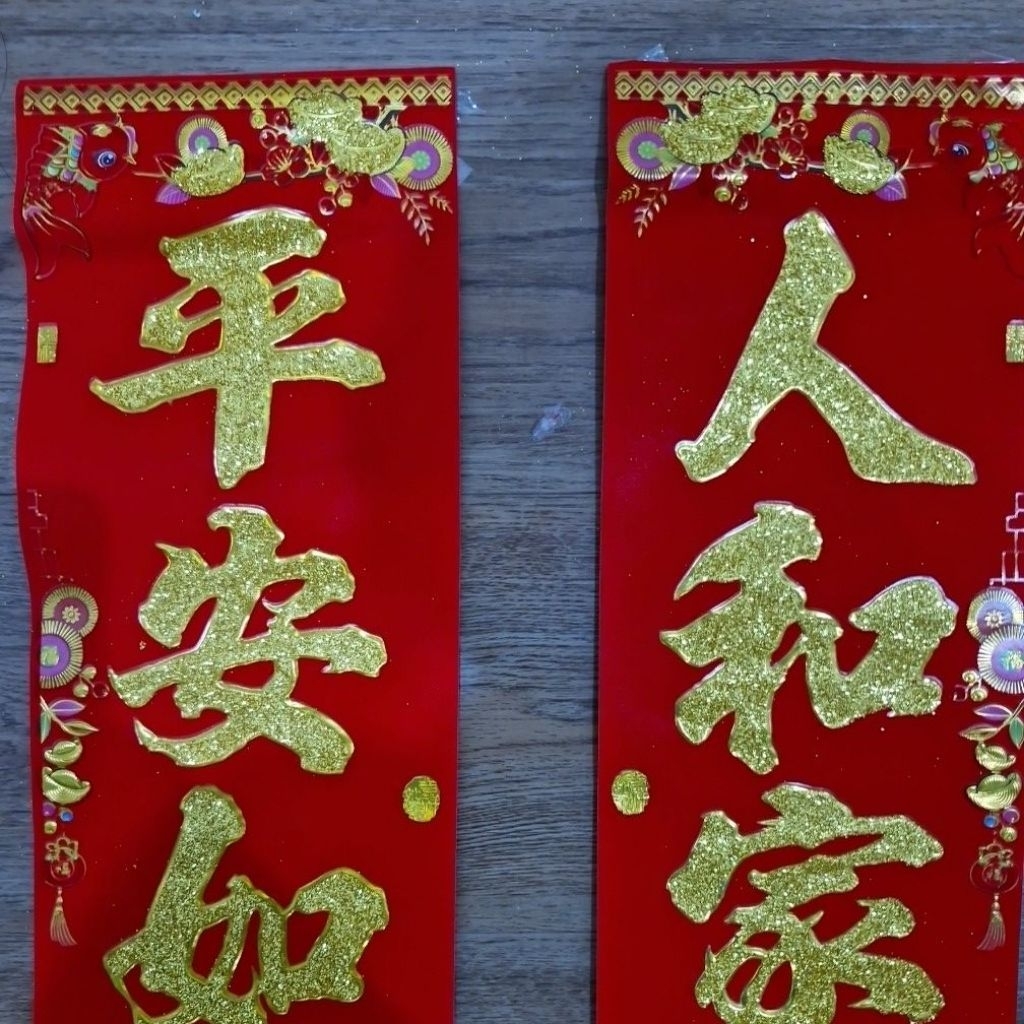 人和家
平安如